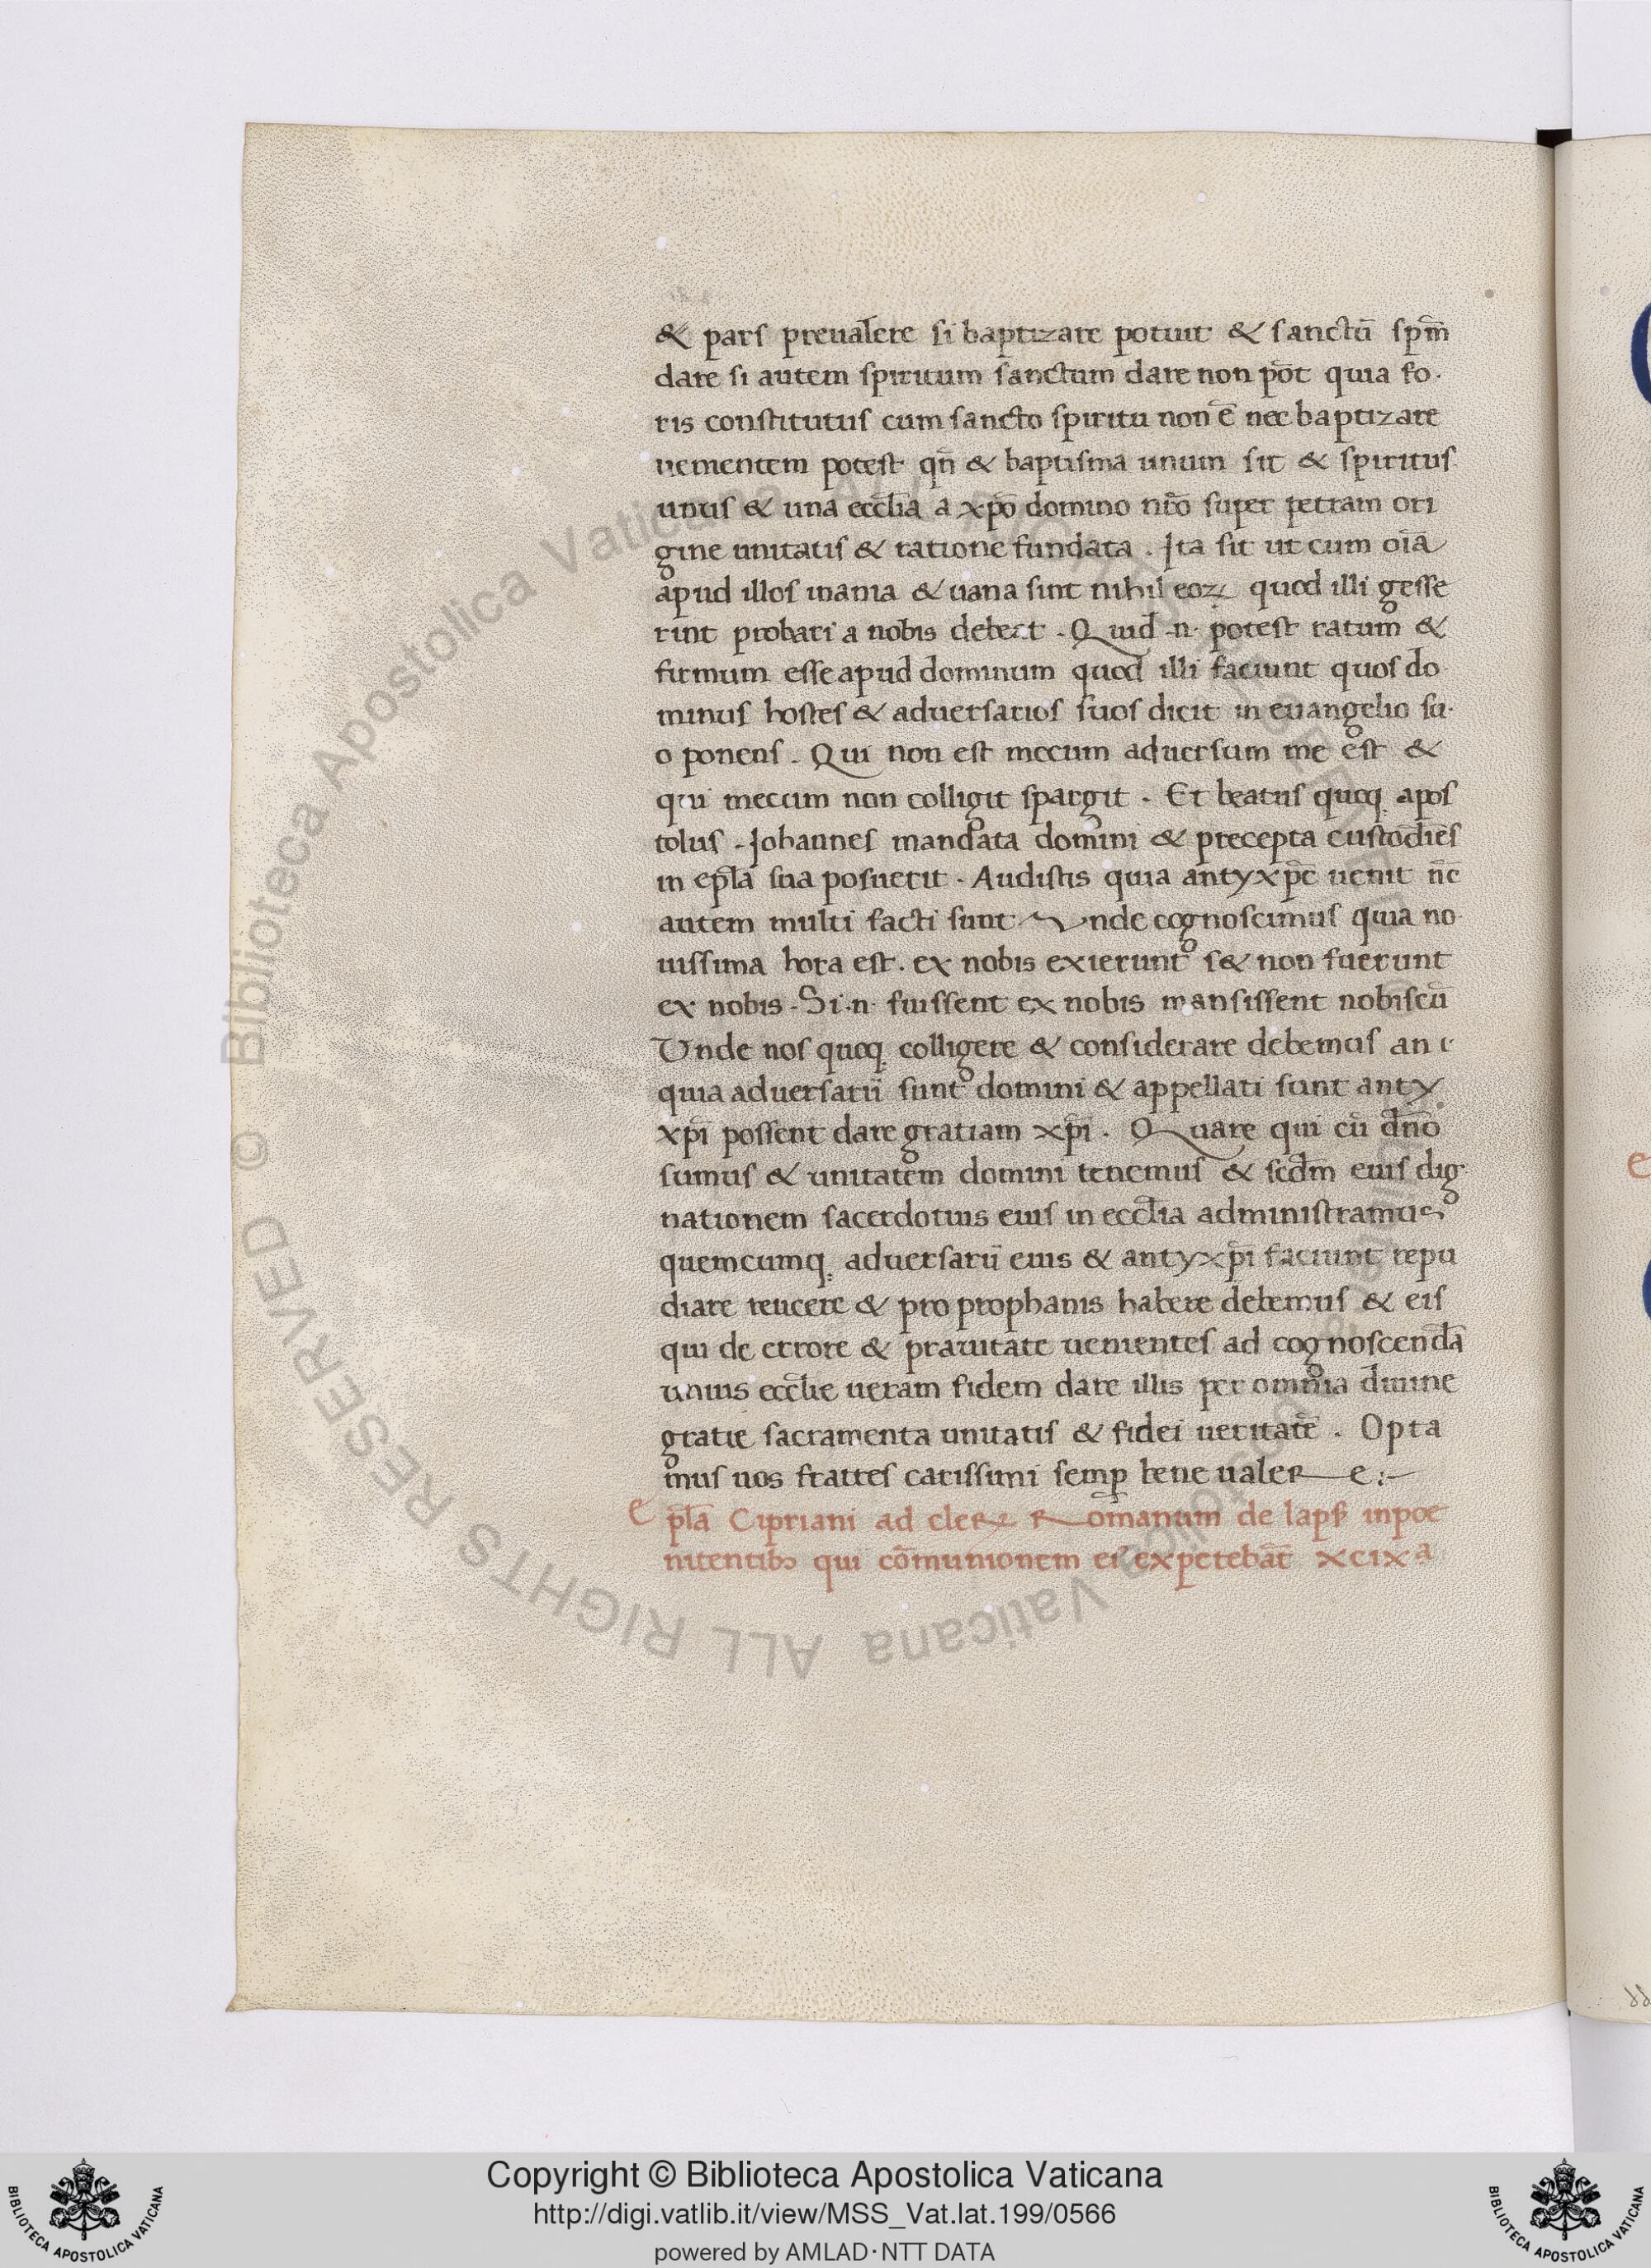 & pars preualere si baptizare potuit & sanctū spm̄
dare si autem spiritum sanctum dare non pōt quia fo·
ris constitutus cum sancto spiritu non ē nec baptizare
uenientem potest qn̄ & baptisma unum sit & spiritus
unus & una eccl̄ia a xp̄o domino nr̄o super petram ori
gine unitatis & ratione fundata . Ita sit ut cum oīa
apud illos inania & uana sint nihil eoꝝ quod illi gesse
rint probari a nobis debeat . Quid .n. potest ratum &
firmum esse apud dominum quod illi faciunt quos do
minus hostes & aduersarios suos dicit in euangelio su·
o ponens . Qui non est mecum aduersum me est &
qui mecum non colligit spargit . Et beatus quoq; apos
tolus . Johannes mandata domini & precepta custodiēs
in ep̄la sua posuerit . Audistis quia antyxp̄c uenit nc̄
autem multi facti sunt . Vnde cognoscimus quia no
uissima hora est . ex nobis exierunt s& non fuerunt
ex nobis . Si .n. fuissent ex nobis mansissent nobiscū
Vnde nos quoq; colligere & considerare debemus an
quia aduersarii sunt domini & appellati sunt anty
xp̄i possent dare gratiam xp̄i . Quare qui cū dn̄o
sumus & unitatem domini tenemus & scd̄m eius dig
nationem sacerdotiis eius in eccl̄ia administramus
quemcumq; aduersarii eius & antyxp̄i faciunt repu
diare reucere & pro prophanis habere debemus & eis
qui de errore & prauitate uenientes ad cognoscendā
unius eccl̄ie ueram fidem dare illis per omnia diuine
gratie sacramenta unitatis & fidei ueritatē . Opta
mus uos fratres carissimi semp̱ bene ualere :-
ep̄la Cipriani ad cleꝝ Romanum de laps̄ inpoe
nitentibꝯ qui cōmunionem ei expetebāt xcixa
© Biblioteca Apostolica Vaticana ALL RIGHTS RESERVED
Copyright © Biblioteca Apostolica Vaticana
http://digi.vatlib.it/view/MSS_Vat.lat.199/0566
powered by AMLAD·NTT DATA
BIBLIOTECA APOSTOLICA VATICANA
BIBLIOTECA APOSTOLICA VATICANA